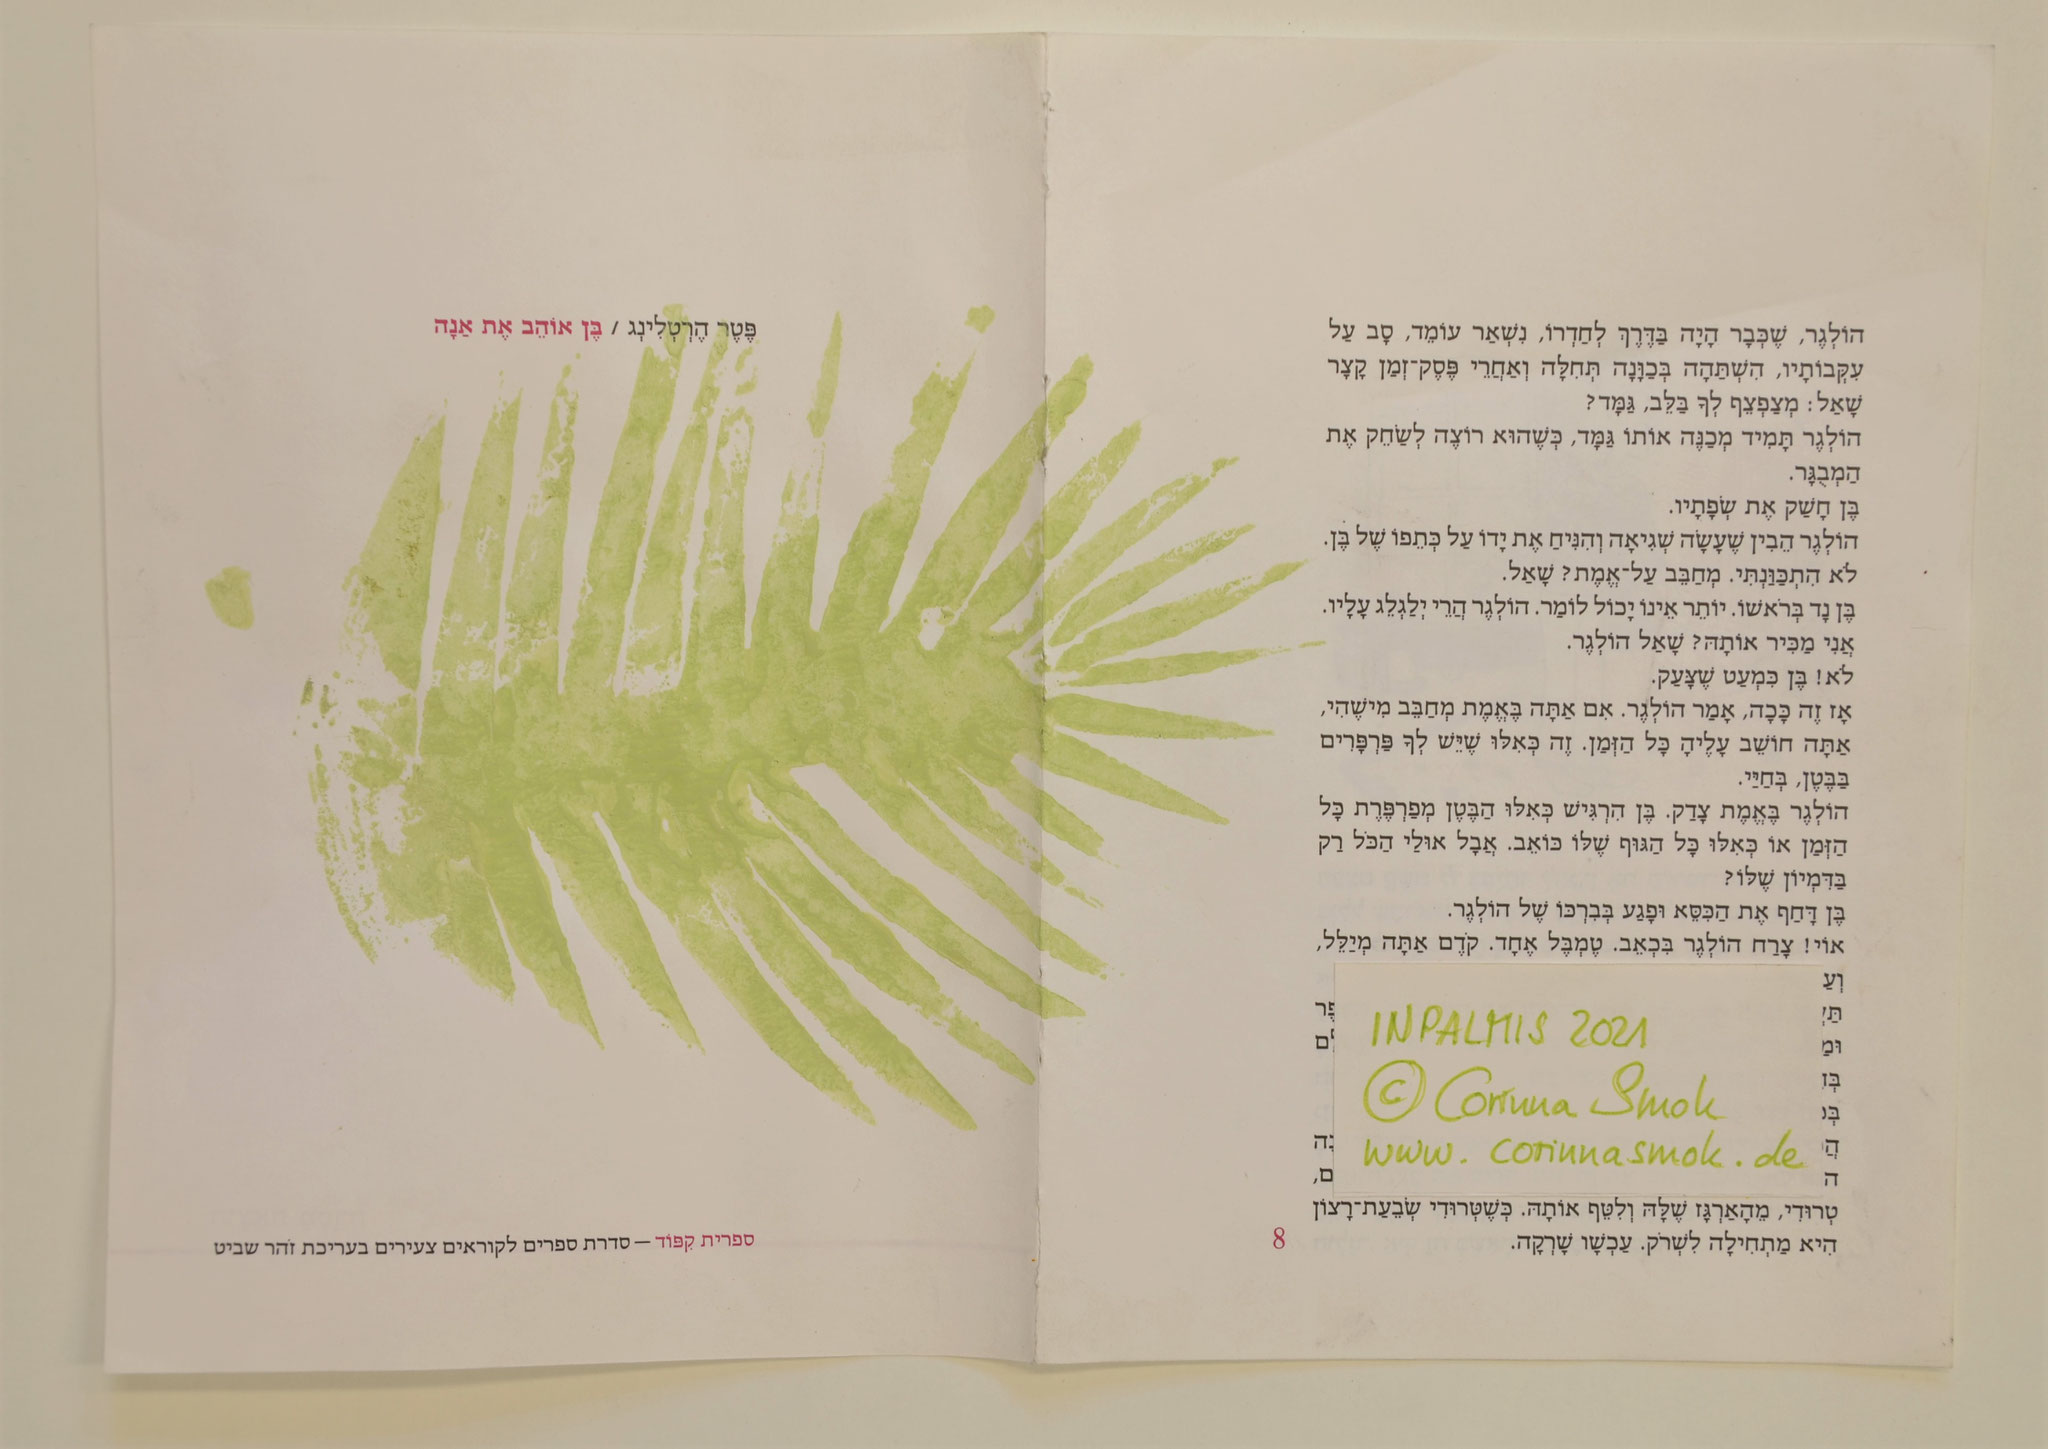 הוֹלְגֶר, שֶׁכְּבָר הָיָה בַּדֶּרֶךְ לְחַדְרוֹ, נִשְׁאַר עוֹמֵד, סָב עַל
עִקְּבוֹתָיו, הִשְׁתַּהָה בְּכַוָּנָה תְּחִלָּה וְאַחֲרֵי פֶּסֶק־זְמַן קָצָר
שָׁאַל: מְצַפְצֵף לְךָ בַּלֵּב, גַּמָּד?
הוֹלְגֶר תָּמִיד מְכַנֶּה אוֹתוֹ גַּמָּד, כְּשֶׁהוּא רוֹצֶה לְשַׂחֵק אֶת
הַמְבֻגָּר.
בֶּן חָשַׁק אֶת שְׂפָתָיו.
הוֹלְגֶר הֵבִין שֶׁעָשָׂה שְׁגִיאָה וְהִנִּיחַ אֶת יָדוֹ עַל כְּתֵפוֹ שֶׁל בֶּן.
לֹא הִתְכַּוַּנְתִּי. מְחַבֵּב עַל־אֱמֶת? שָׁאַל.
בֶּן נָד בְּרֹאשׁוֹ. יוֹתֵר אֵינוֹ יָכוֹל לוֹמַר. הוֹלְגֶר הֲרֵי יְלַגְלֵג עָלָיו.
אֲנִי מַכִּיר אוֹתָהּ? שָׁאַל הוֹלְגֶר.
לֹא! בֶּן כִּמְעַט שֶׁצָּעַק.
אָז זֶה כָּכָה, אָמַר הוֹלְגֶר. אִם אַתָּה בֶּאֱמֶת מְחַבֵּב מִישֶׁהִי,
אַתָּה חוֹשֵׁב עָלֶיהָ כָּל הַזְּמַן. זֶה כְּאִלּוּ שֶׁיֵּשׁ לְךָ פַּרְפָּרִים
בַּבֶּטֶן, בְּחַיַּי.
הוֹלְגֶר בֶּאֱמֶת צָדַק. בֶּן הִרְגִּישׁ כְּאִלּוּ הַבֶּטֶן מְפַרְפֶּרֶת כָּל
הַזְּמַן אוֹ כְּאִלּוּ כָּל הַגּוּף שֶׁלּוֹ כּוֹאֵב. אֲבָל אוּלַי הַכֹּל רַק
בַּדִּמְיוֹן שֶׁלּוֹ?
בֶּן דָּחַף אֶת הַכִּסֵּא וּפָגַע בְּבִרְכּוֹ שֶׁל הוֹלְגֶר.
אוֹי! צָרַח הוֹלְגֶר בִּכְאֵב. טֶמְבֶּל אֶחָד. קֹדֶם אַתָּה מְיַלֵּל,
INPALMIS 2021
© Corinna Smok
www.corinnasmok.de
טְרוּדִי, מֵהָאַרְגָּז שֶׁלָּהּ וְלִטֵּף אוֹתָהּ. כְּשֶׁטְּרוּדִי שְׂבֵעַת־רָצוֹן
הִיא מַתְחִילָה לִשְׁרֹק. עַכְשָׁו שָׁרְקָה.
8
פֶּטֶר הֶרְטְלִינְג / בֶּן אוֹהֵב אֶת אַנָה
ספרית קִפּוֹד – סדרת ספרים לקוראים צעירים בעריכת זֹהר שביט